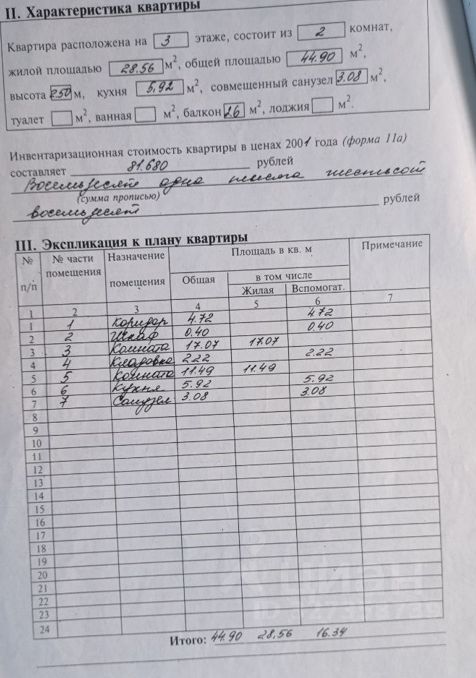 II. Характеристика квартиры
Квартира расположена на 3 этаже, состоит из 2 комнат,
жилой площадью 28.56 м², общей площадью 44.90 м²,
высота 2.50 м, кухня 5,92 м², совмещенный санузел 3.08 м²,
туалет м², ванная м², балкон 2.6 м², лоджия м².
Инвентаризационная стоимость квартиры в ценах 2001 года (форма 11а)
составляет 81.680 рублей
Восемьдесят одна тысяча шестьсот
(сумма прописью)
восемьдесят рублей
III. Экспликация к плану квартиры
№ п/п № части помещения Назначение помещения Площадь в кв. м Примечание
Общая в том числе
Жилая Вспомогат.
1 2 3 4 5 6 7
1 1 Коридор 4.72 4.72
2 2 Шкаф 0.40 0.40
3 3 Комната 17.07 17.07
4 4 Кладовка 2.22 2.22
5 5 Комната 11.49 11.49
6 6 Кухня 5.92 5.92
7 7 Санузел 3.08 3.08
8
9
10
11
12
13
14
15
16
17
18
19
20
21
22
23
24
Итого: 44.90 28,56 16.34